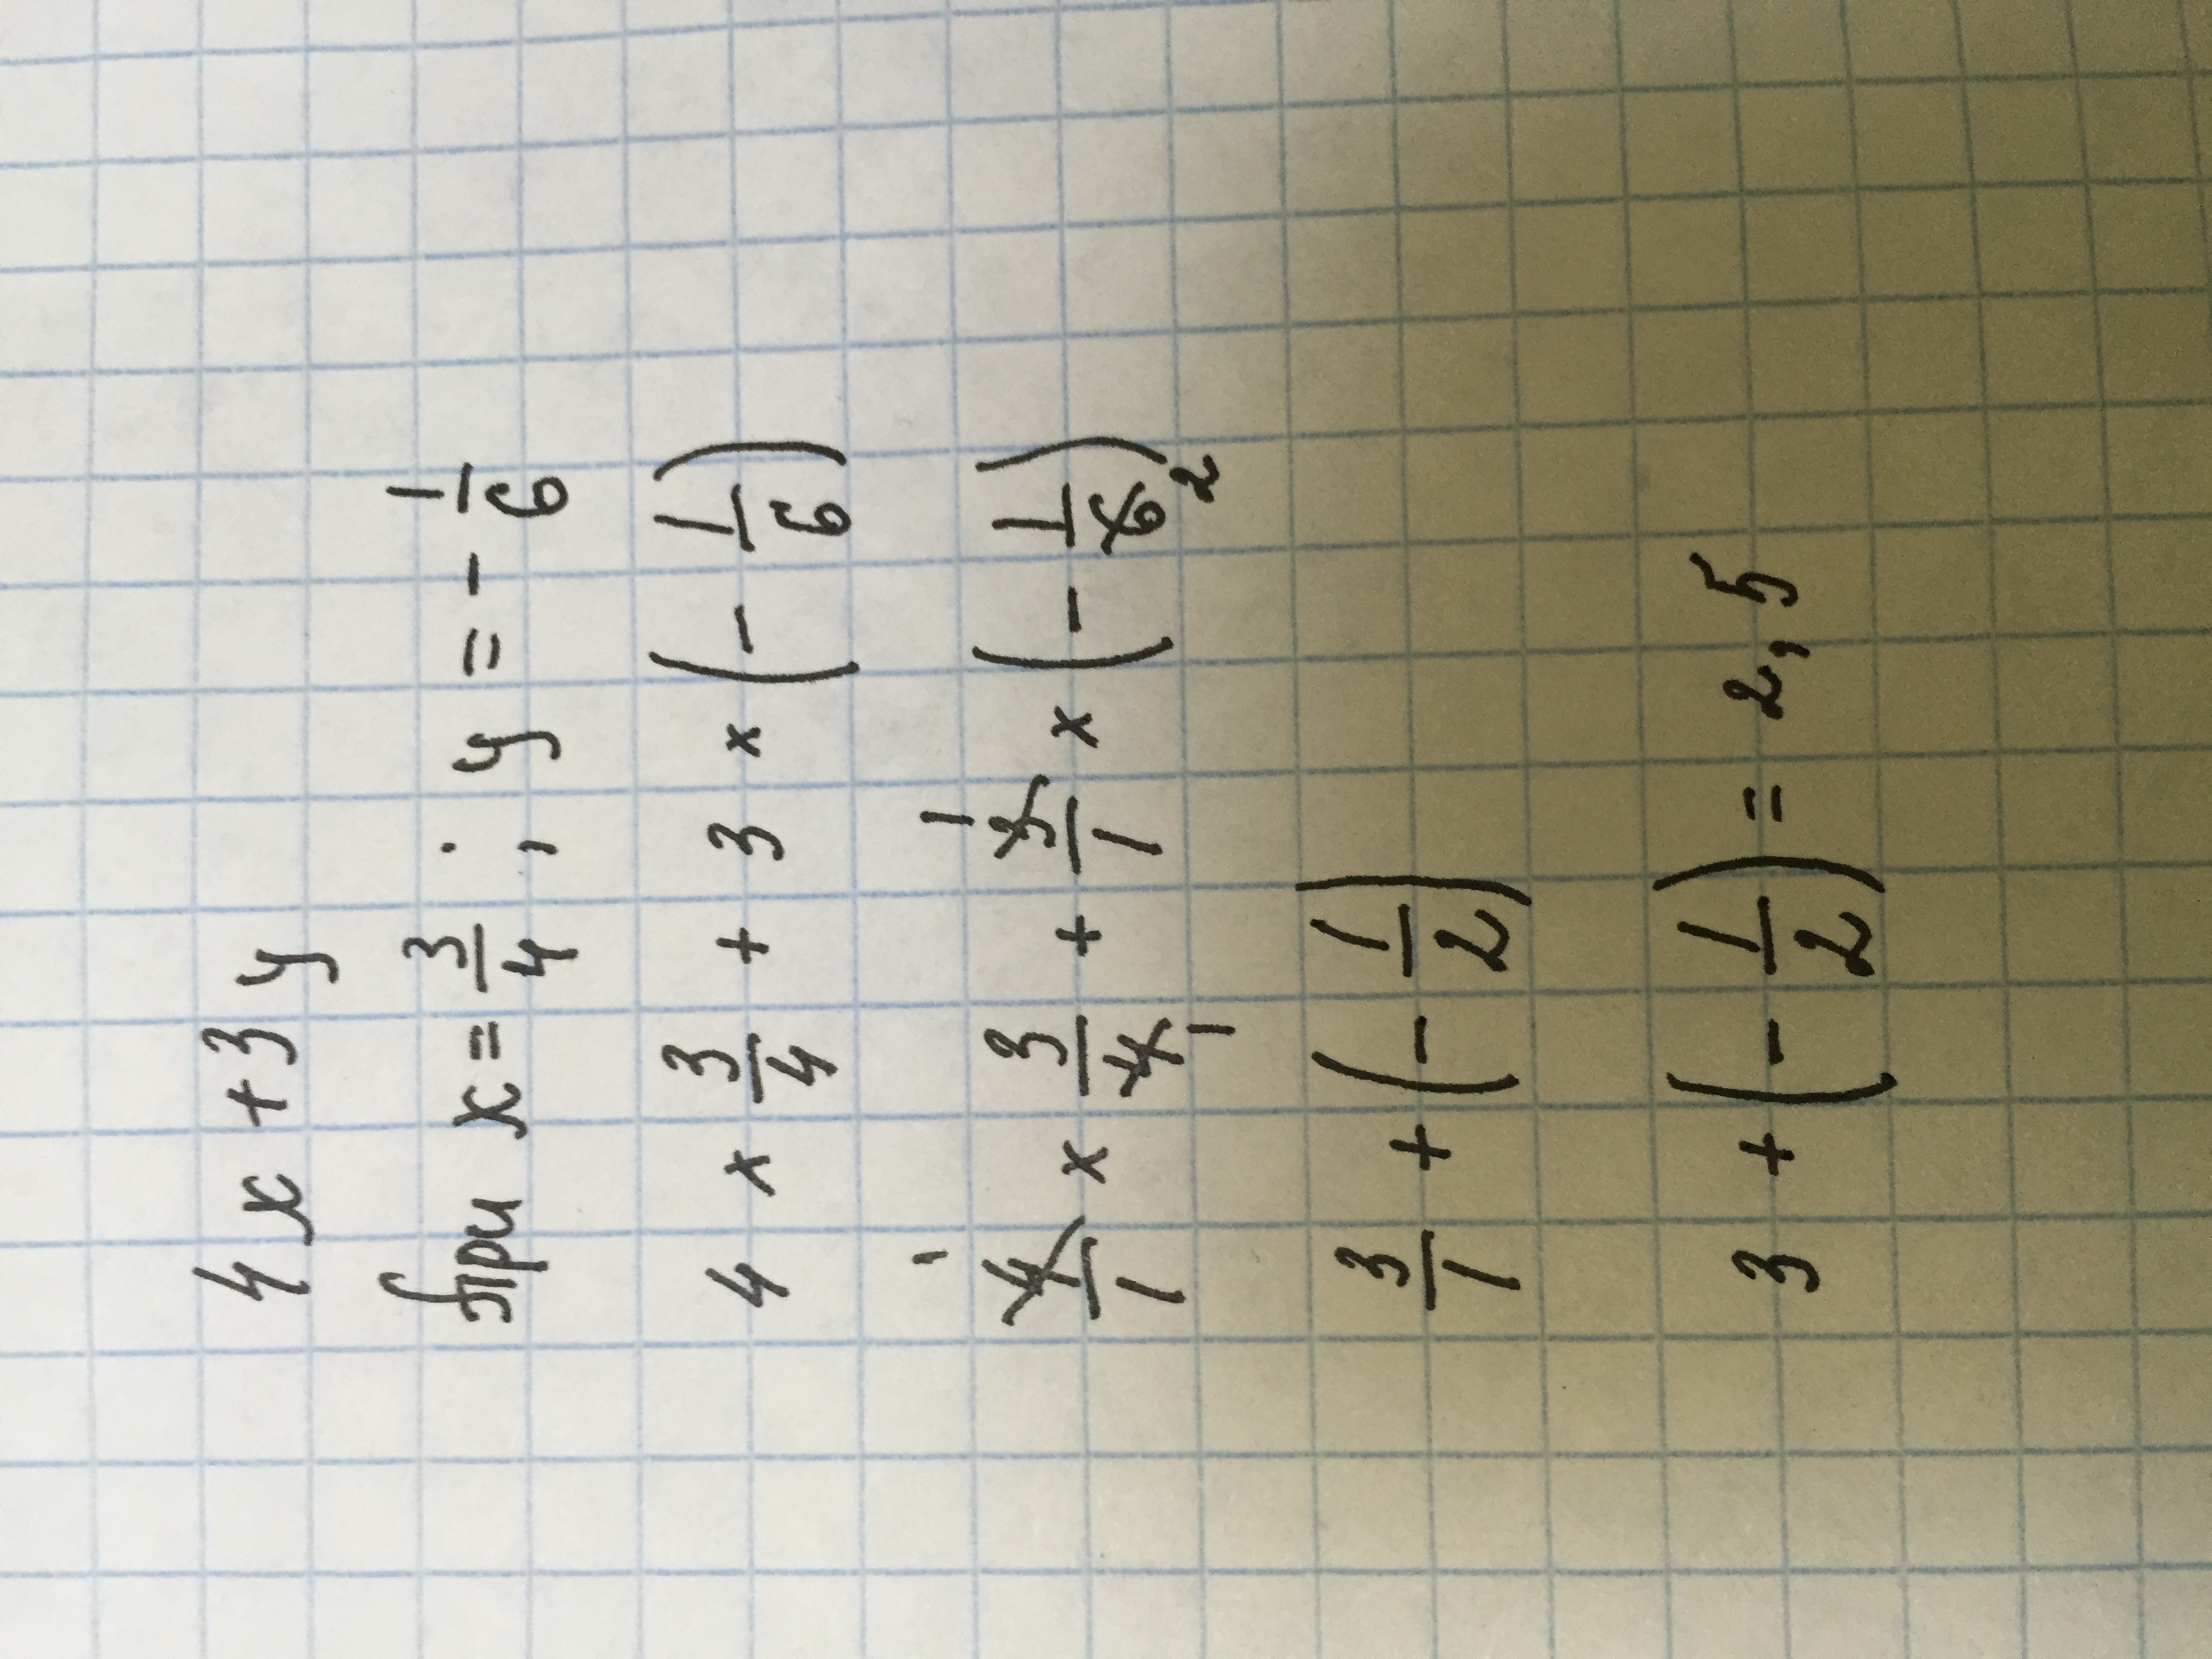 4x + 3y
При x = 3/4 ; y = - 1/6
4 × 3/4 + 3 × (- 1/6)
4/1 × 3/4 + 3/1 × (- 1/6)
3/1 + (- 1/2)
3 + (- 1/2) = 2,5